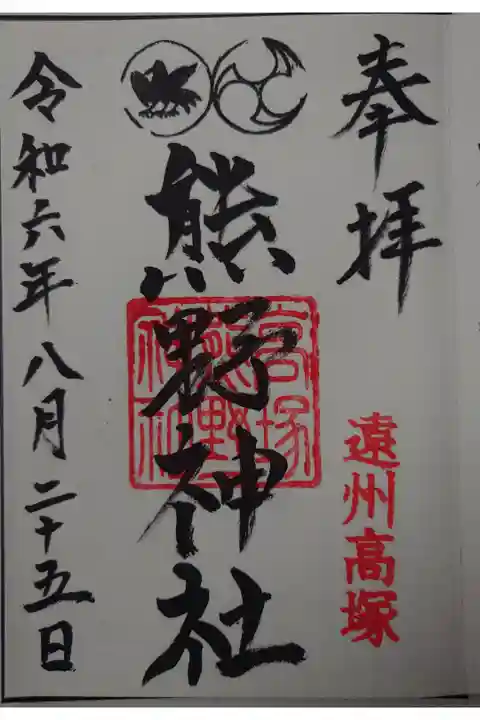 奉拝
遠州高塚
熊野神社
高塚
熊野
神社
令和六年八月二十五日